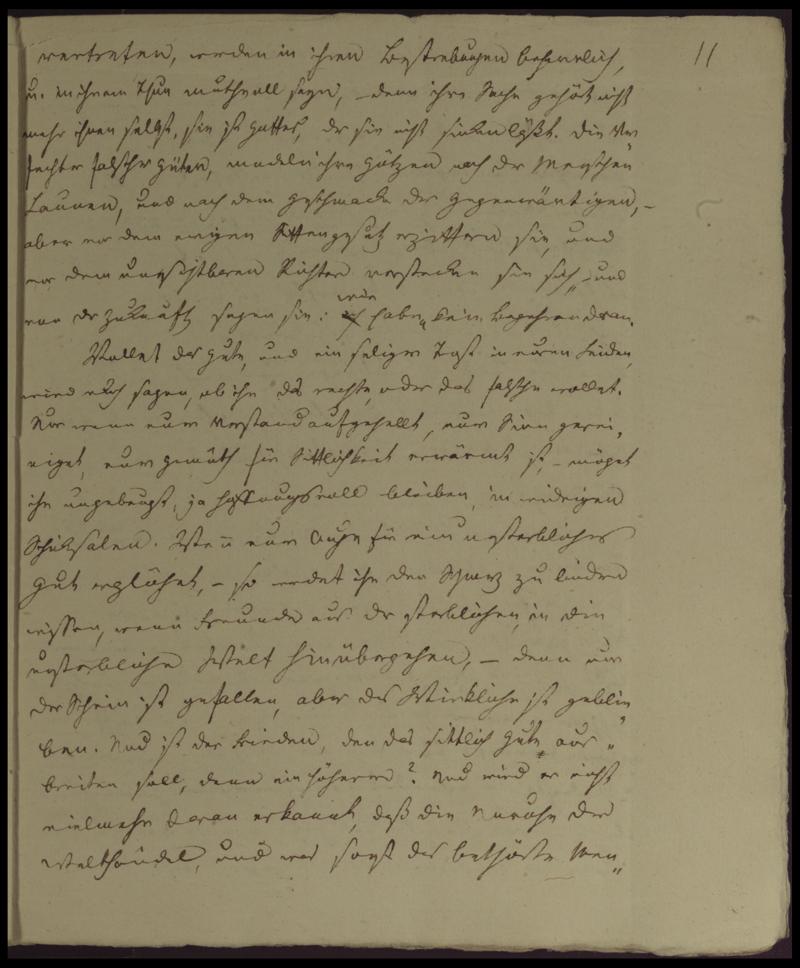 11
vertreten, werden in ihren Bestrebungen beharrlich,
u. in ihrem Thun muthvoll seyn, – denn ihre Sache gehört nicht
mehr ihnen selbst, sie ist Gottes, der sie nicht sinken läßt. Die Ver
fechter falscher Güter, modeln ihre Götzen nach der Menschen
Launen, und nach dem Geschmacke der Gegenwärtigen, –
aber vor dem ewigen Sittengesetz erzittern sie, und
vor dem unsichtbaren Richter verstecken sie sich, und
von der Zukunft sagen sie: wir haben kein Begehren daran.
Wollet das Gute, und ein seliger Trost in euren Leiden,
wird euch sagen, ob ihr das rechte, oder das falsche wollet.
Nur wenn euer Verstand aufgehellt, euer Sinn gerei„
niget, euer Gemüth für Sittlichkeit erwärmt ist, – möget
ihr ungebeugt, ja hoffnungsvoll bleiben, in widrigen
Schiksalen. Wenn euer Auge für ein unsterbliches
Gut erglühet, – so werdet ihr den Schmerz zu lindern
wissen, wenn Freunde aus der sterblichen, in die
unsterbliche Welt hinübergehen, – denn nur
der Schein ist gefallen, aber das Wirkliche ist geblie„
ben. Und ist der Frieden, den das sittlich Gute aus„
breiten soll, denn ein höherer? Und wird er nicht
vielmehr daran erkannt, daß die Unruhe der
Welthändel, und was sonst das bethörte Men„